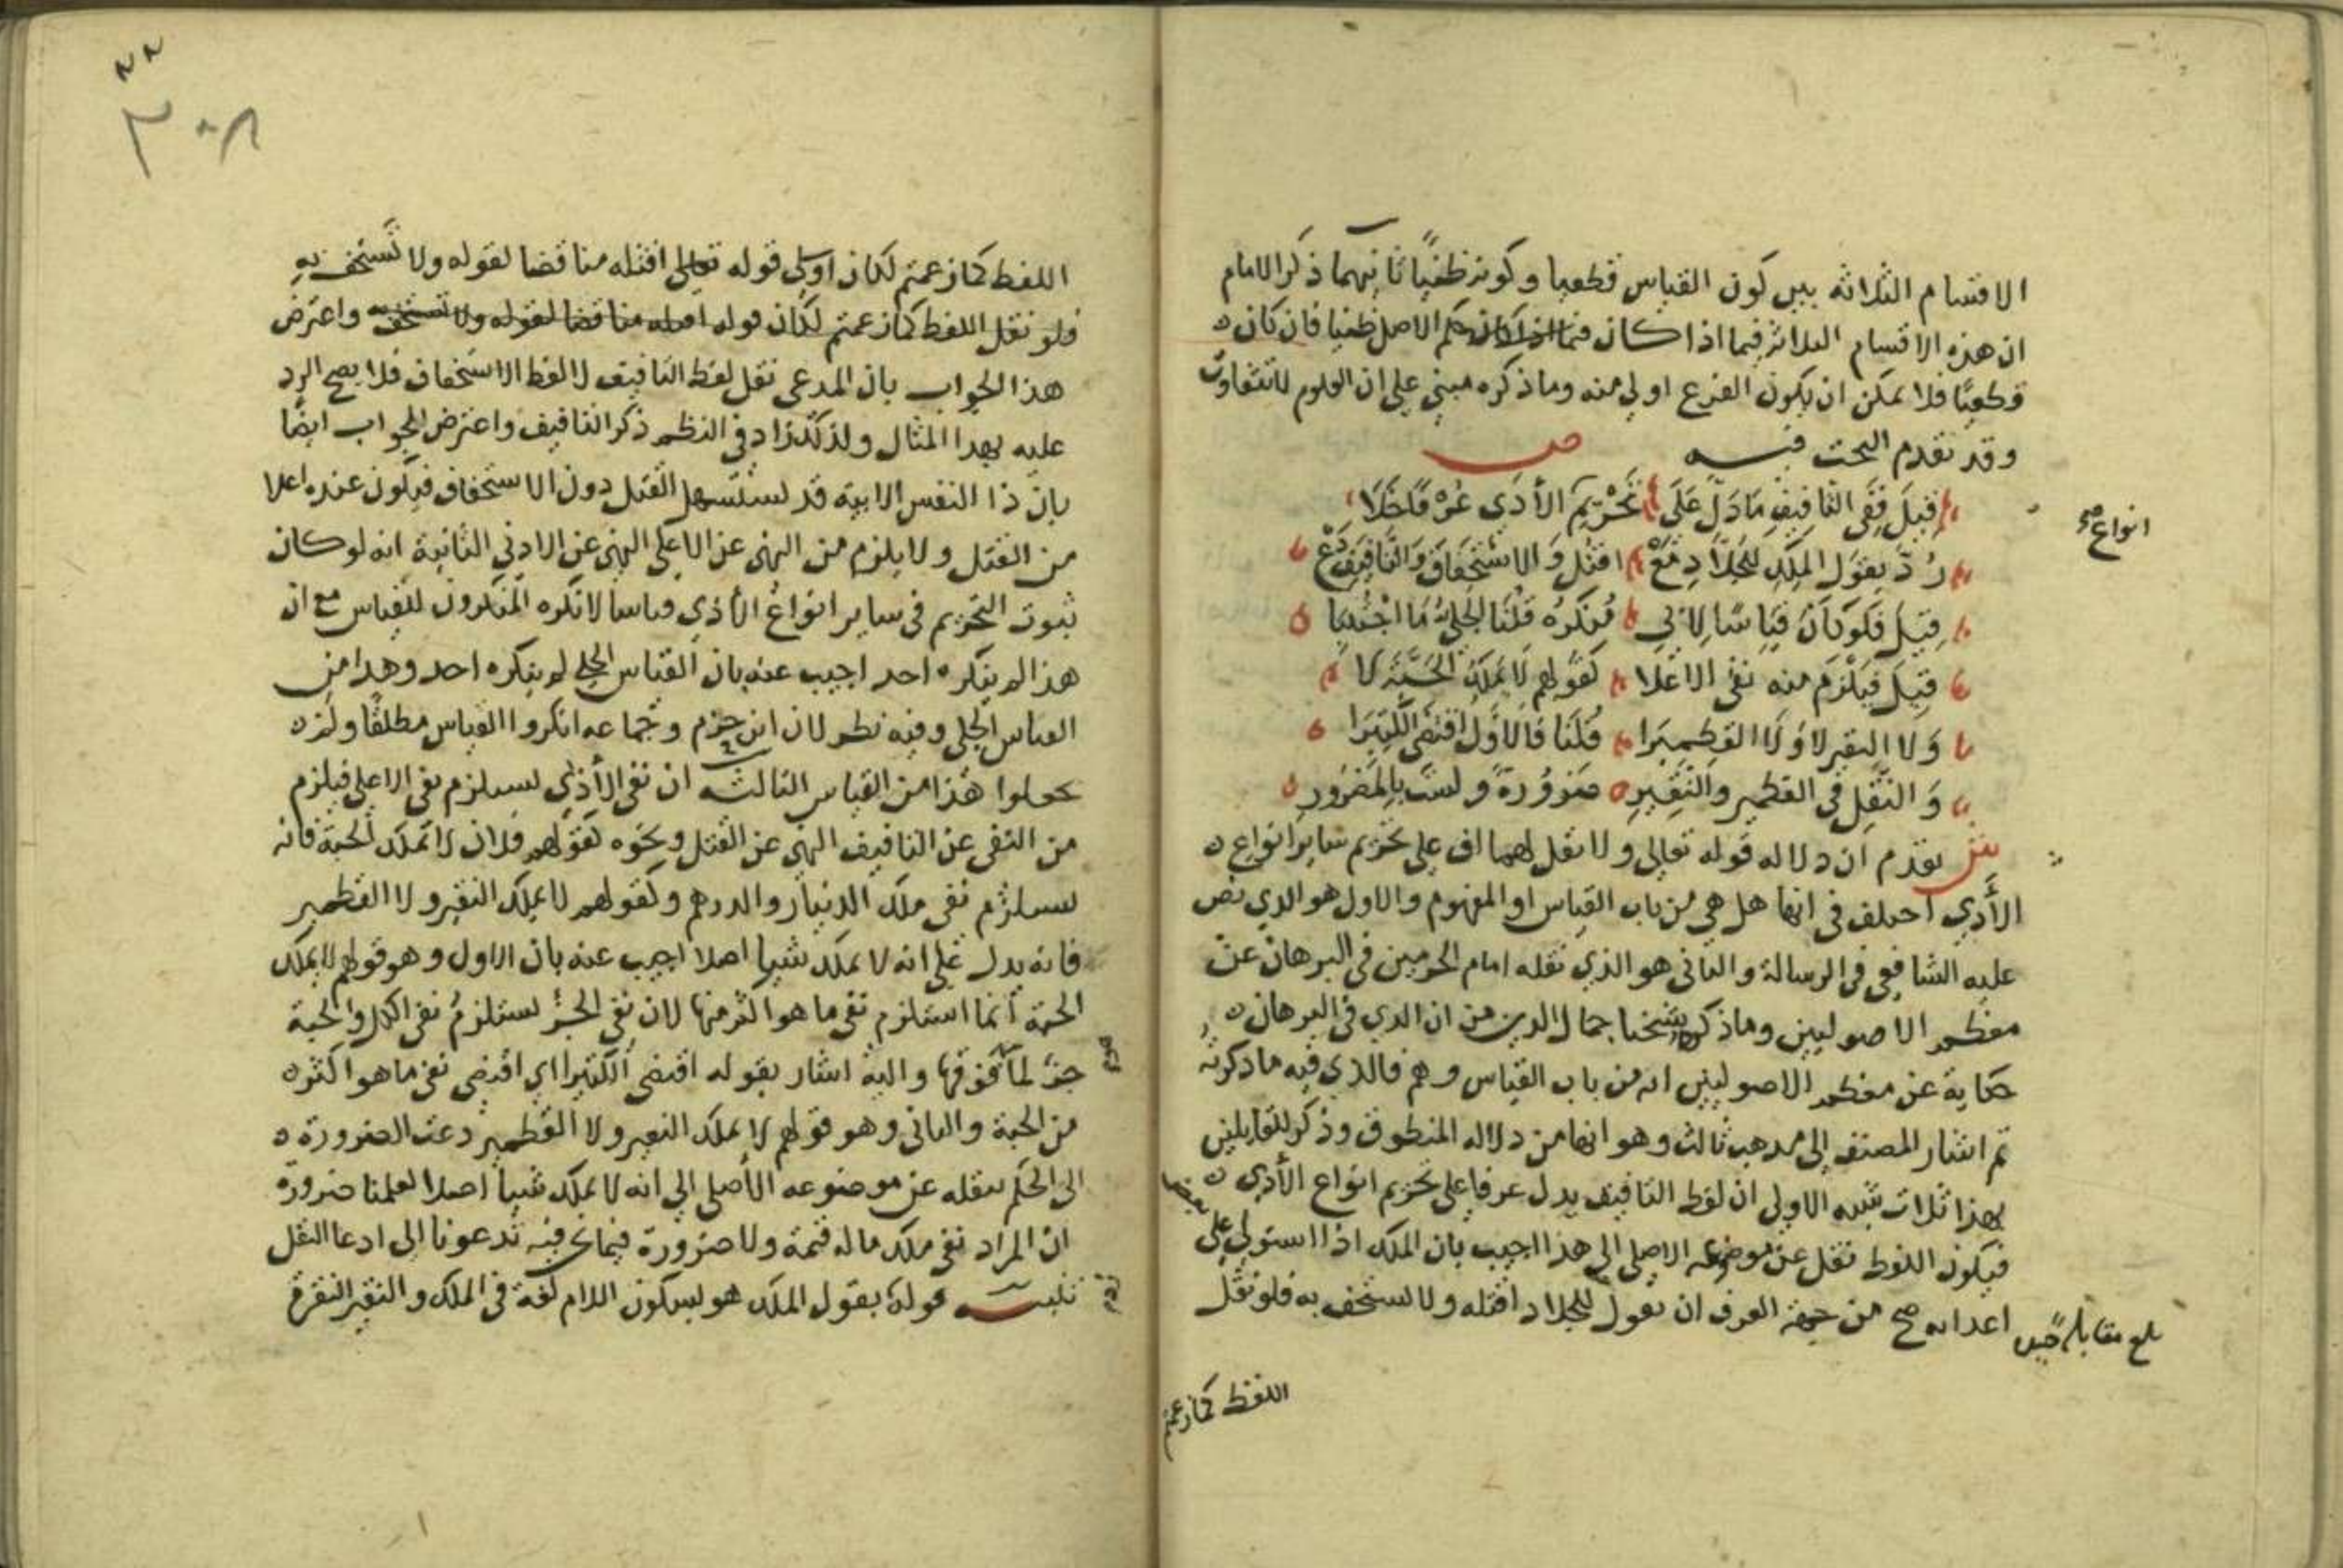 الاقسام الثلاثة بين كون القياس قطعيا وكونه ظنيا ثانيهما ذكر الامام
ان هذه الاقسام الثلاثة فيما اذا كان حكم الاصل ظنيا فان كان
قطعيا فلا يمكن ان يكون الفرع اولى منه وما ذكره مبني على ان العلوم لا تتفاوت
وقد تقدم البحث فيه ص
قيل ففي التافيف ما دل على تحريم الأذى عرفا خلا
انواع صح
رد بقول الملك للجلاد مع اقتل والاستخفاف والتافيف دع
قيل فلو كان قياسا لابي منكره قلنا الجلي ما اجتبيا
قيل فيلزم منه نفي الاعلا كقولهم لا يملك الحبة لا
ولا النقير لا ولا القطميرا قلنا فالاول اقتضى الكثيرا
والنقل في القطمير والنقير ضرورة ولست بالمضرور
ش تقدم ان دلاله قوله تعالى ولا تقل لهما اف على تحريم ساير انواع
الأذي اختلف في انها هل هي من باب القياس او المفهوم والاول هو الذي نص
عليه الشافعي في الرسالة والثاني هو الذي نقله امام الحرمين في البرهان عن
معظم الاصوليين وما ذكره شيخنا جمال الدين من ان الذي في البرهان
حكاية عن معظم الاصوليين انه من باب القياس وهم فالذي فيه ما ذكرته
ثم اشار المصنف الى مذهب ثالث وهو انها من دلاله المنطوق وذكر للقايلين
بهذا ثلاث شبه الاولى ان لفظ التافيف يدل عرفا على تحريم انواع الأذي
فيكون اللفظ نقل عن موضوعه الاصلي الى هذا اجيب بان الملك اذا استولى على
بعض
اعدايه صح من جهة العرف ان يقول للجلاد اقتله ولا تستخف به فلو نقل
بلغ مقابلة
اللفظ كما زعمتم
٣٠٨
اللفظ كما زعمتم لكان اولى قوله تعالى اقتله مناقضا لقوله ولا تستخف به
فلو نقل اللفظ كما زعمتم لكان قوله اقتله مناقضا لقوله ولا تستخف به واعترض
هذا الجواب بان المدعي نقل لفظ التافيف لا لفظ الاستخفاف فلا يصح الرد
عليه بهذا المثال ولذلك زاد في النظم ذكر التافيف واعترض الجواب ايضا
بان ذا النفس الابية قد يستسهل القتل دون الاستخفاف فيكون عنده اعلا
من القتل ولا يلزم من النهي عن الاعلى النهي عن الادني الثانية انه لو كان
ثبوت التحريم في ساير انواع الأذي قياسا لانكره المنكرون للقياس مع ان
هذا لم ينكره احد اجيب عنه بان القياس الجلي لم ينكره احد وهذا من
القياس الجلي وفيه نظر لان ابن حزم وجماعه انكروا القياس مطلقا ولم
يجعلوا هذا من القياس الثالثه ان نفي الأذي يستلزم نفي الاعلى فيلزم
من النفي عن التافيف النهي عن القتل ونحوه كقولهم فلان لا يملك الحبة فانه
يستلزم نفي ملك الدينار والدرهم وكقولهم لا يملك النقير ولا القطمير
فانه يدل على انه لا يملك شيا اصلا اجيب عنه بان الاول وهو قولهم لا يملك
الحبة انما استلزم نفي ما هو اكثر منها لان نفي الجزء يستلزم نفي الكل والحبة
جزء لما فوقها واليه اشار بقوله اقتضى الكثيرا اي اقتضى نفي ما هو اكثر
من الحبة والثاني وهو قولهم لا يملك النقير ولا القطمير دعت الضرورة
الى الحكم بنقله عن موضوعه الأصلي الى انه لا يملك شيا اصلا لعلمنا ضرورة
ان المراد نفي ملك ما له قيمة ولا ضرورة فيما نحن فيه تدعونا الى ادعا النقل
تنبيه قوله بقول الملك هو بسكون اللام لغة في الملك والنقير النقرة